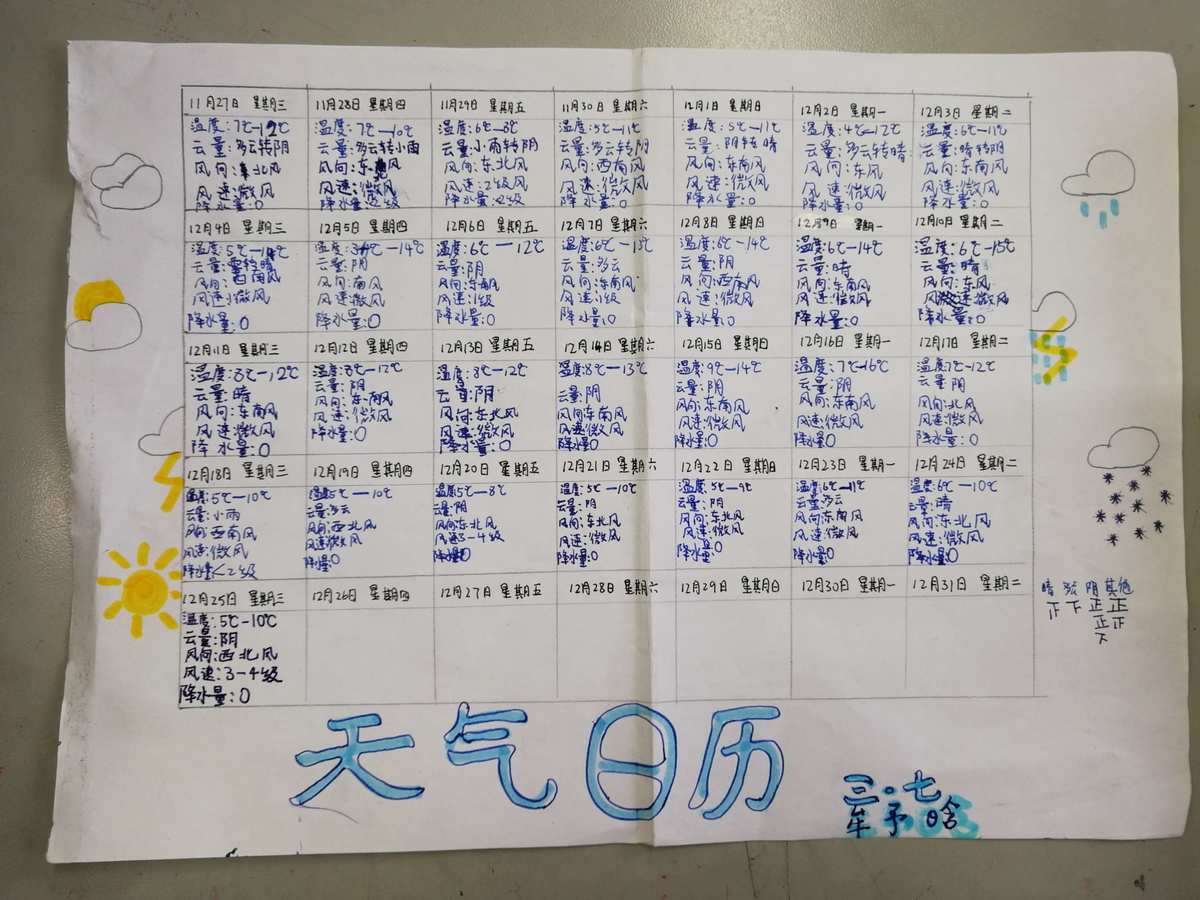 11月27日 星期三
温度:7℃-12℃
云量:多云转阴
风向:东北风
风速:微风
降水量:0
11月28日 星期四
温度:7℃-10℃
云量:多云转小雨
风向:东 风
风速:微风
降水量:<2级
11月29日 星期五
温度:6℃-8℃
云量:小雨转阴
风向:东北风
风速:2级风
降水量:<2级
11月30日 星期六
温度:5℃-11℃
云量:多云转阴
风向:西南风
风速:微风
降水量:0
12月1日 星期日
温度:5℃-11℃
云量:阴转晴
风向:东南风
风速:微风
降水量:0
12月2日 星期一
温度:4℃-12℃
云量:多云转晴
风向:东风
风速:微风
降水量:0
12月3日 星期二
温度:6℃-11℃
云量:晴转阴
风向:东南风
风速:微风
降水量:0
12月4日 星期三
温度:5℃-14℃
云量:
风向:西南风
风速:微风
降水量:0
12月5日 星期四
温度: -14℃
云量:阴
风向:南风
风速:微风
降水量:0
12月6日 星期五
温度:6℃-12℃
云量:阴
风向:东南风
风速:1级
降水量:0
12月7日 星期六
温度:6℃-13℃
云量:多云
风向:东南风
风速:1级
降水量:0
12月8日 星期日
温度:6℃-14℃
云量:阴
风向:西南风
风速:微风
降水量:0
12月9日 星期一
温度:6℃-14℃
云量:晴
风向:东南风
风速:微风
降水量:0
12月10日 星期二
温度:6℃-15℃
云量:晴
风向:东风
风速:微风
降水量:0
12月11日 星期三
温度:8℃-12℃
云量:晴
风向:东南风
风速:微风
降水量:0
12月12日 星期四
温度:8℃-12℃
云量:阴
风向:东南风
风速:微风
降水量:0
12月13日 星期五
温度:8℃-12℃
云量:阴
风向:东北风
风速:微风
降水量:0
12月14日 星期六
温度:8℃-13℃
云量:阴
风向:东南风
风速:微风
降水量:0
12月15日 星期日
温度:9℃-14℃
云量:阴
风向:东南风
风速:微风
降水量:0
12月16日 星期一
温度:7℃-16℃
云量:阴
风向:东南风
风速:微风
降水量:0
12月17日 星期二
温度:7℃-12℃
云量:阴
风向:北风
风速:微风
降水量:0
12月18日 星期三
温度:5℃-10℃
云量:小雨
风向:西南风
风速:微风
降水量:<2级
12月19日 星期四
温度:5℃-10℃
云量:多云
风向:西北风
风速:微风
降水量:0
12月20日 星期五
温度:5℃-8℃
云量:阴
风向:东北风
风速:3-4级
降水量:0
12月21日 星期六
温度:5℃-10℃
云量:阴
风向:东北风
风速:微风
降水量:0
12月22日 星期日
温度:5℃-9℃
云量:阴
风向:东北风
风速:微风
降水量:0
12月23日 星期一
温度:6℃-11℃
云量:多云
风向:东南风
风速:微风
降水量:0
12月24日 星期二
温度:6℃-10℃
云量:晴
风向:东北风
风速:微风
降水量:0
12月25日 星期三
温度:5℃-10℃
云量:阴
风向:西北风
风速:3-4级
降水量:0
12月26日 星期四
12月27日 星期五
12月28日 星期六
12月29日 星期日
12月30日 星期一
12月31日 星期二
晴 多云 阴 其他
正 下 正 正
正 正
下
天气日历
三.七
牟予晗